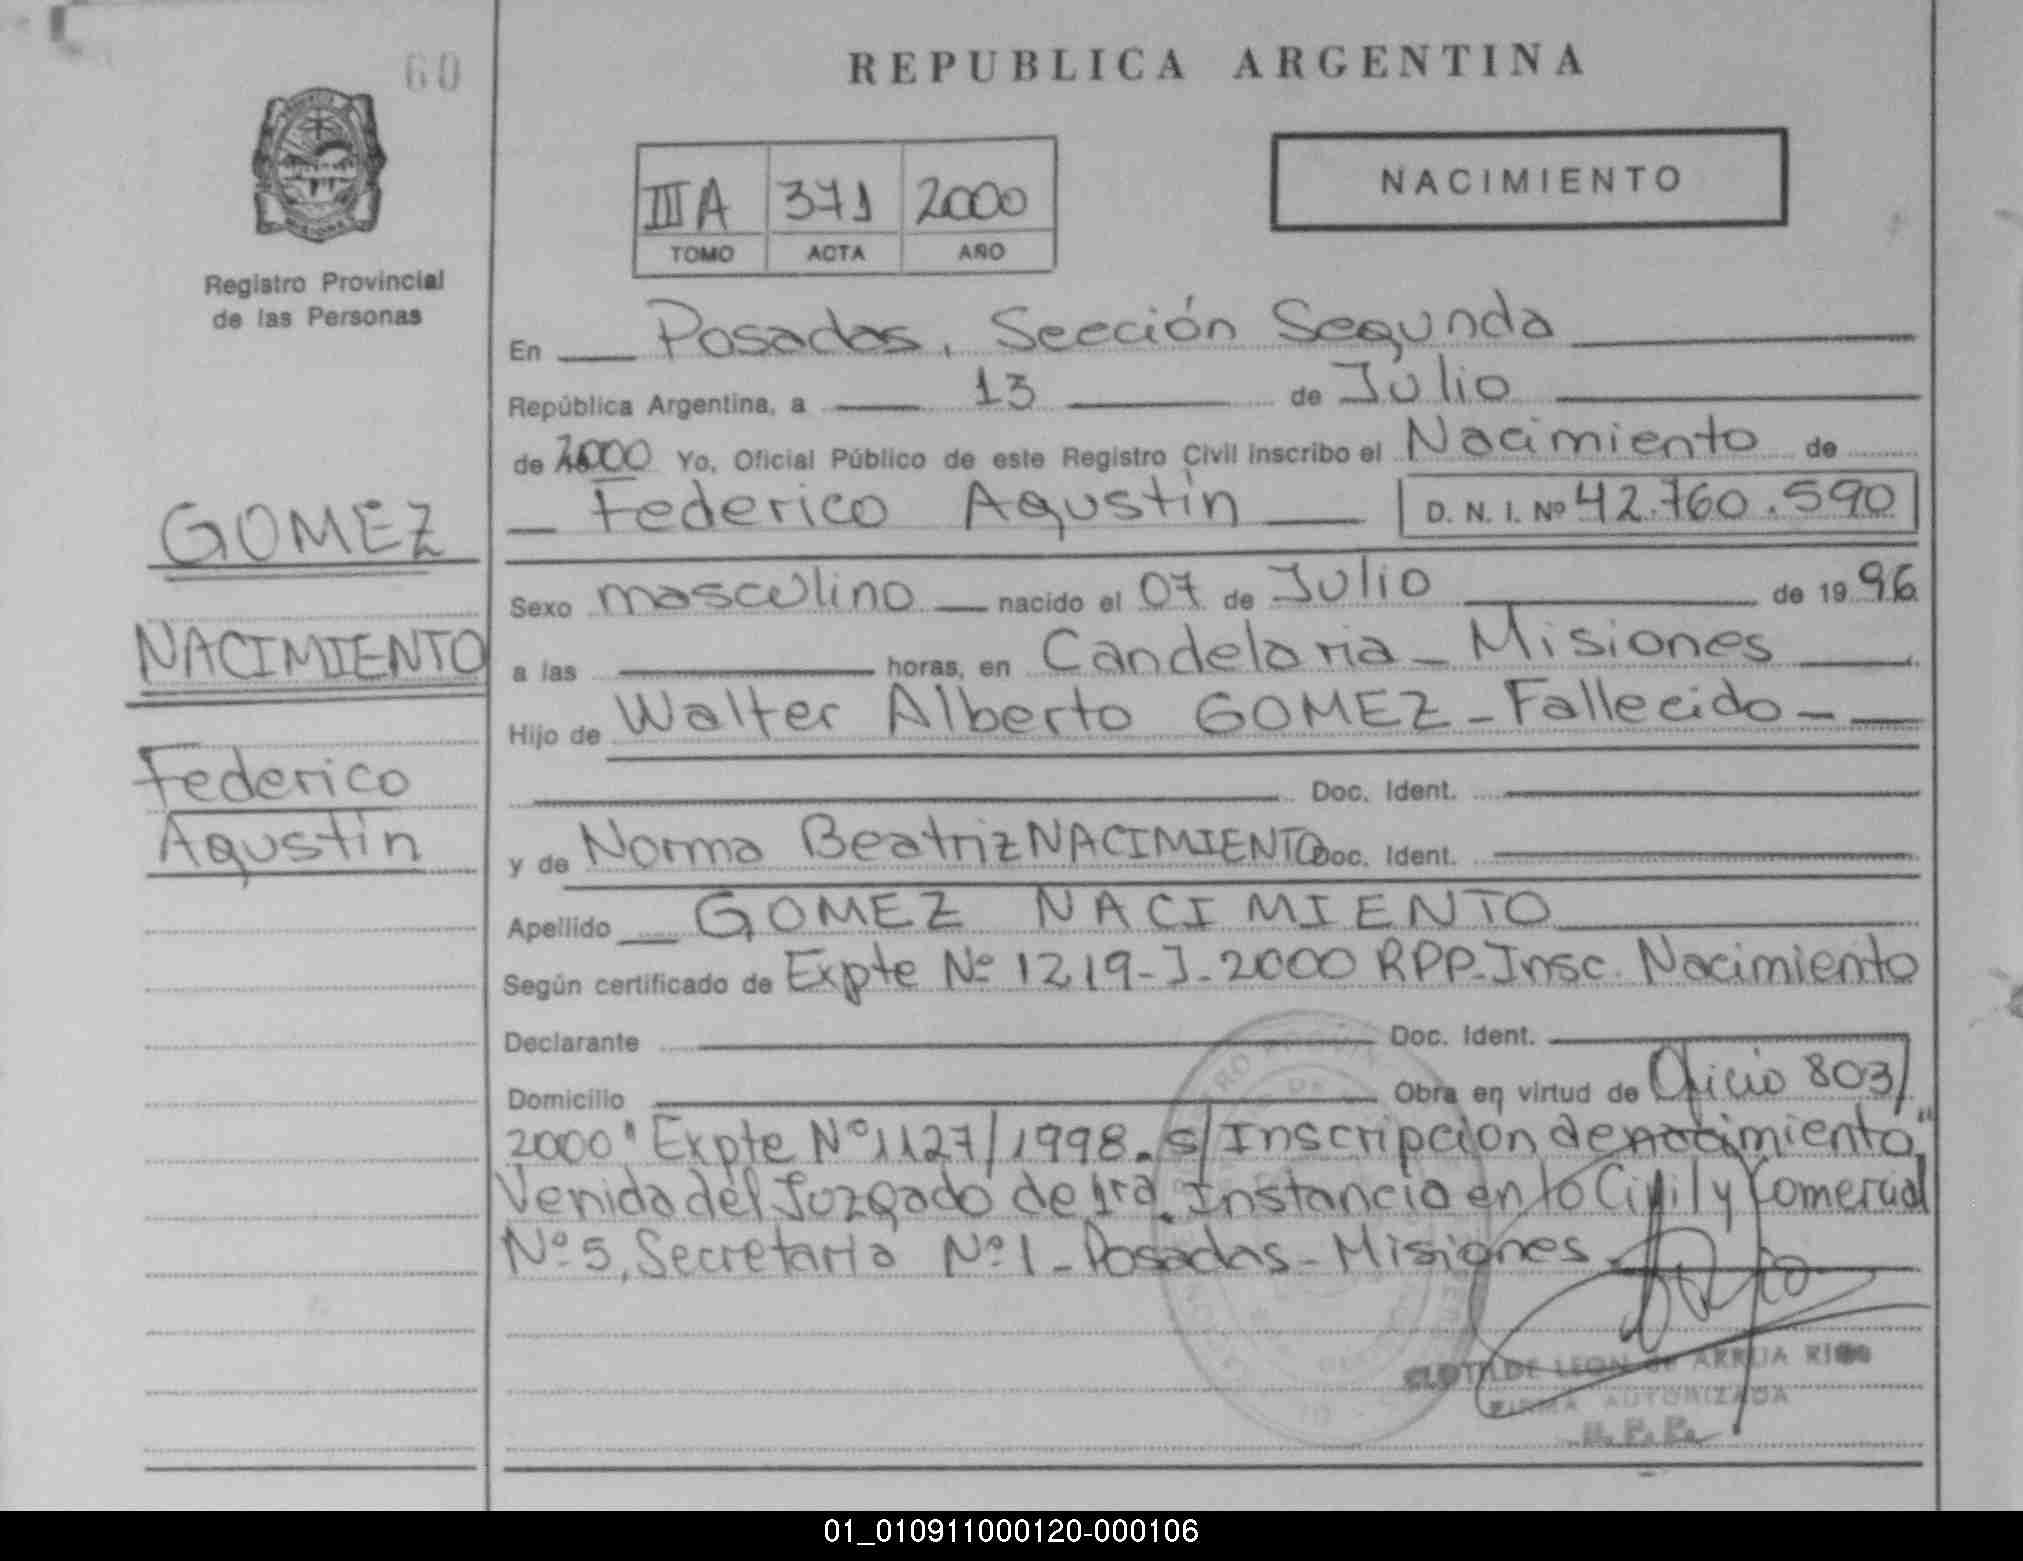 60
REPUBLICA ARGENTINA
IIIA 371 2000
TOMO ACTA AÑO
NACIMIENTO
Registro Provincial
de las Personas
En Posadas, Sección Segunda
República Argentina, a 13 de Julio
de 2000 Yo, Oficial Público de este Registro Civil inscribo el Nacimiento de
Federico Agustín D. N. I. Nº 42.760.590
GOMEZ
NACIMIENTO
Federico
Agustín
Sexo masculino nacido el 07 de Julio de 19 96
a las horas, en Candelaria - Misiones
Hijo de Walter Alberto GOMEZ - Fallecido -
Doc. Ident.
y de Norma Beatriz NACIMIENTO Doc. Ident.
Apellido GOMEZ NACIMIENTO
Según certificado de Expte Nº 1219-J-2000 RPP-Insc. Nacimiento
Declarante Doc. Ident.
Domicilio Obra en virtud de Oficio 803/
2000 "Expte Nº 1127/1998. s/Inscripción de nacimiento"
Venida del Juzgado de 1ra. Instancia en lo Civil y Comercial
Nº 5, Secretaria Nº 1 - Posadas - Misiones
CLOTILDE LEON de ARRUA RIOS
FIRMA AUTORIZADA
R.P.P.
01_010911000120-000106